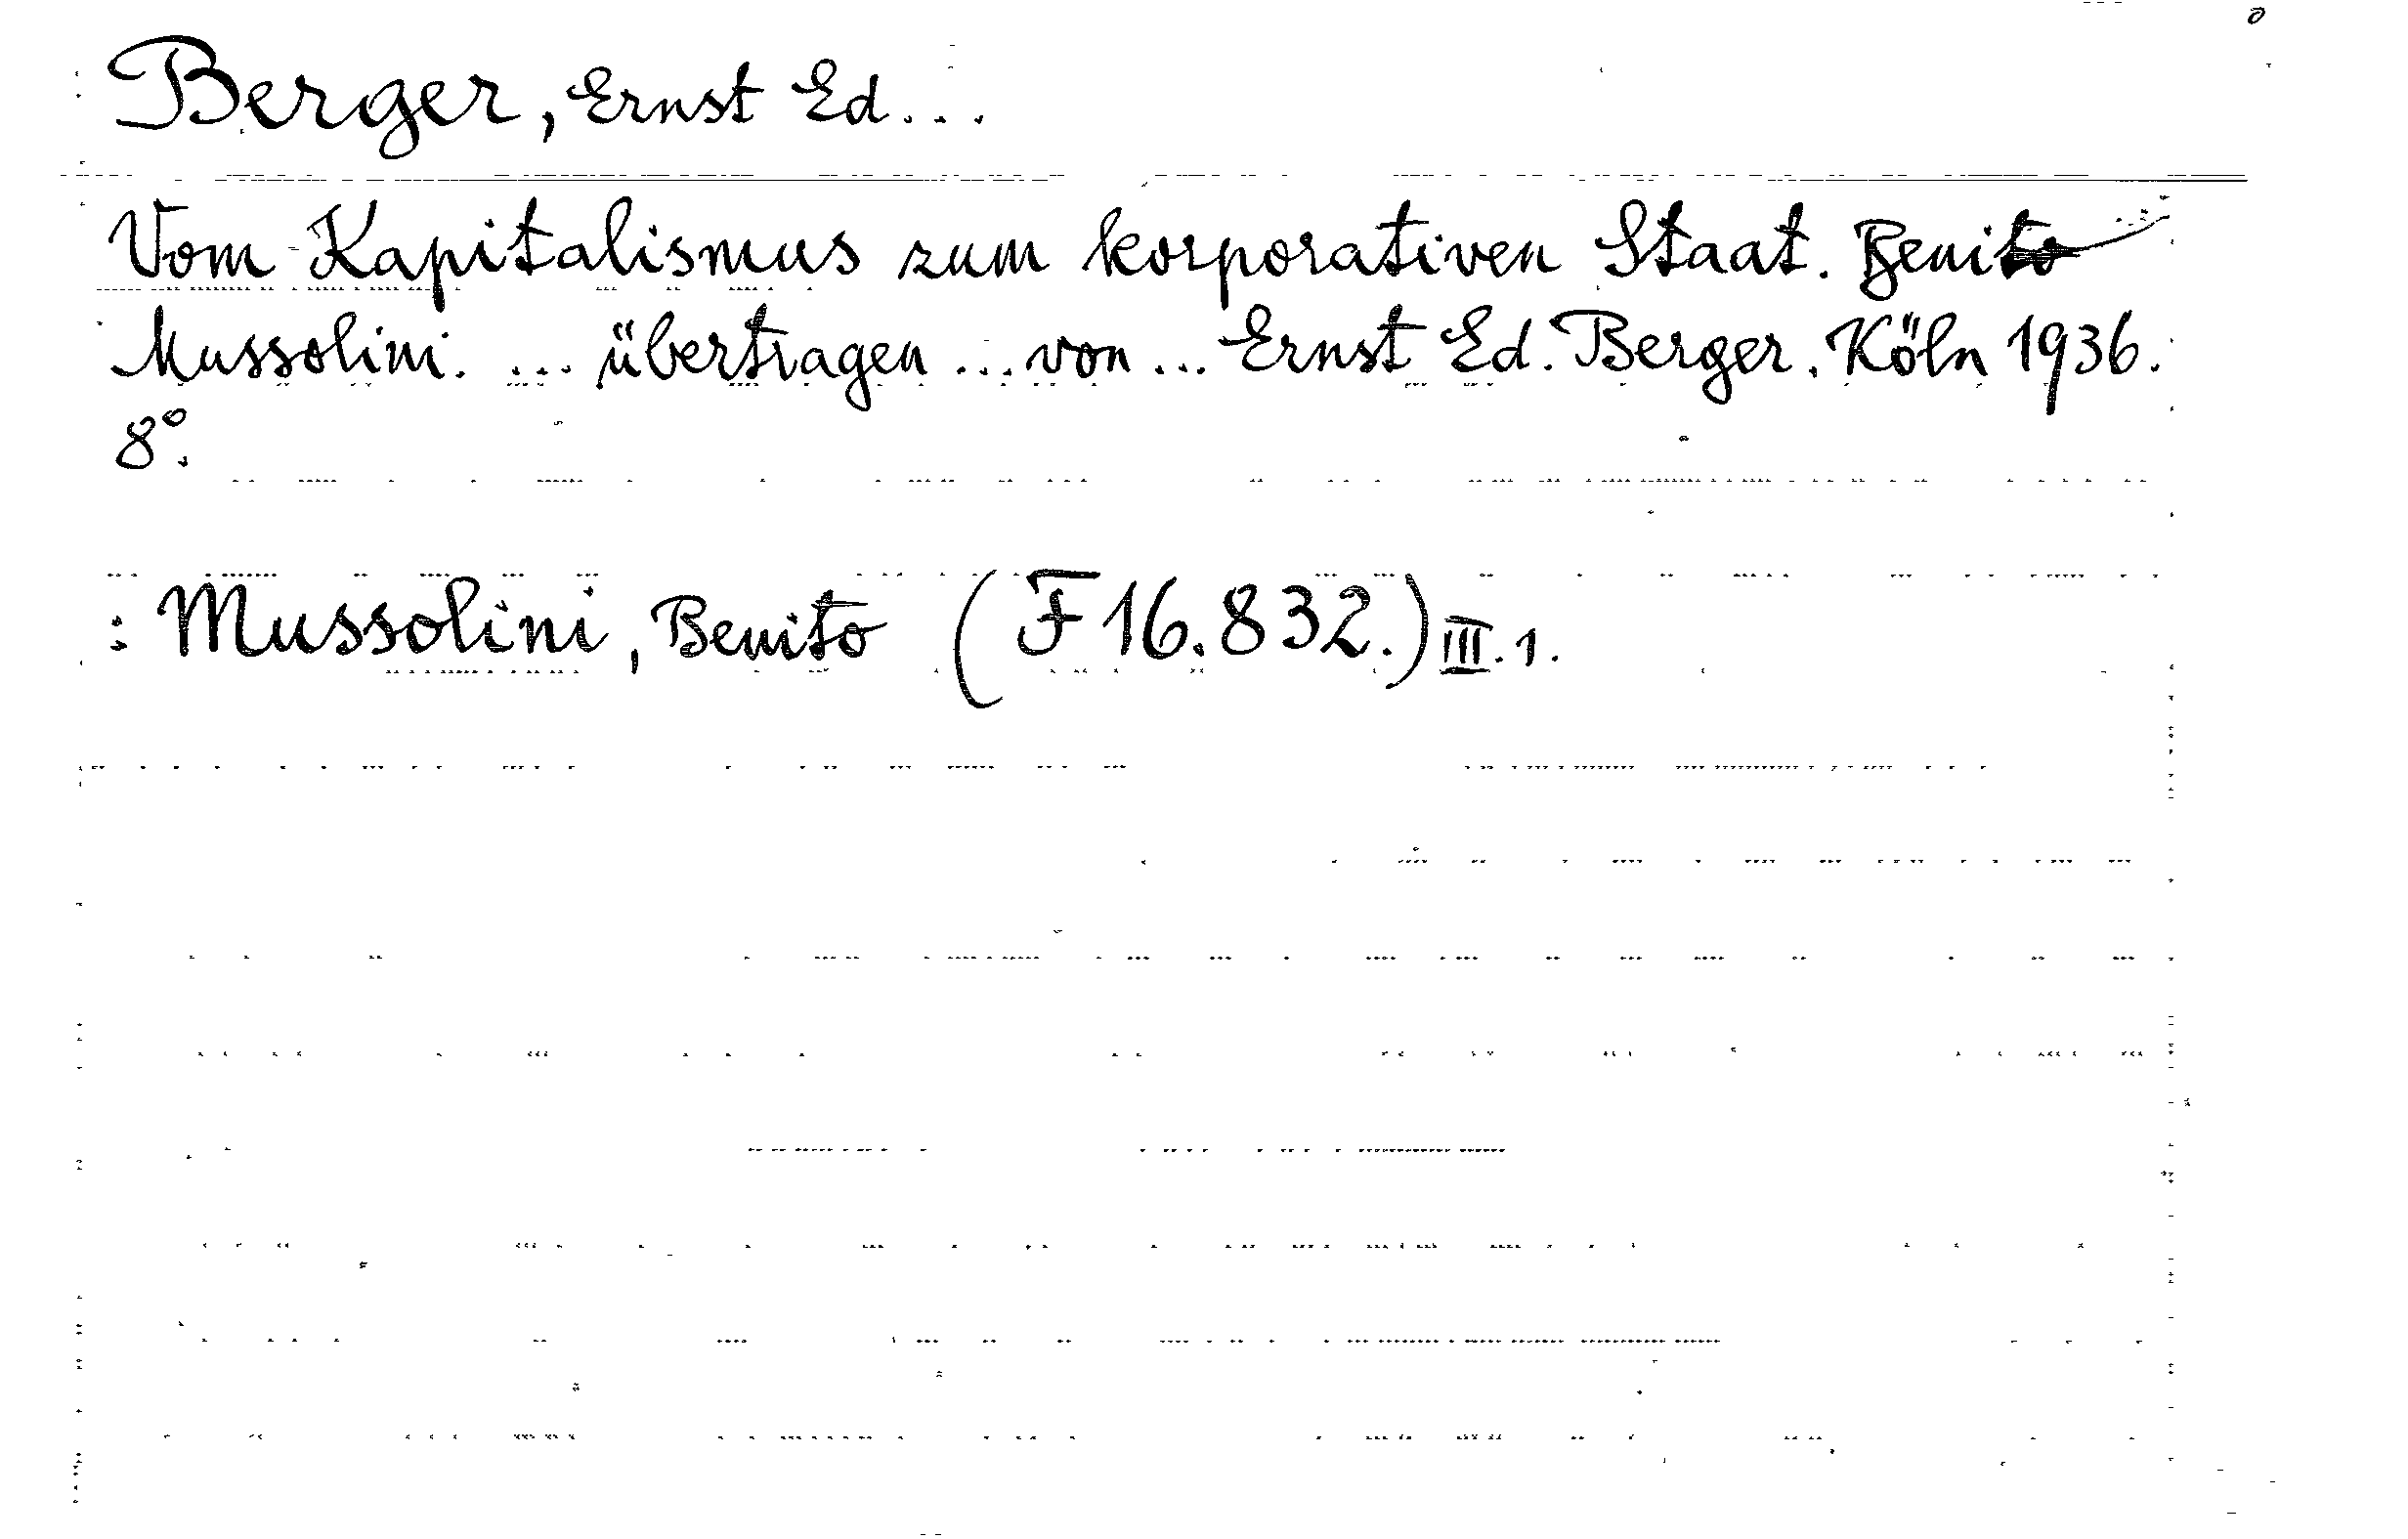 Berger, Ernst Ed...
Vom Kapitalismus zum korporativen Staat. Benito
Mussolini. ... übertragen ... von ... Ernst Ed. Berger. Köln 1936.
8°.
: Mussolini, Benito (F 16.832.) III. 1.